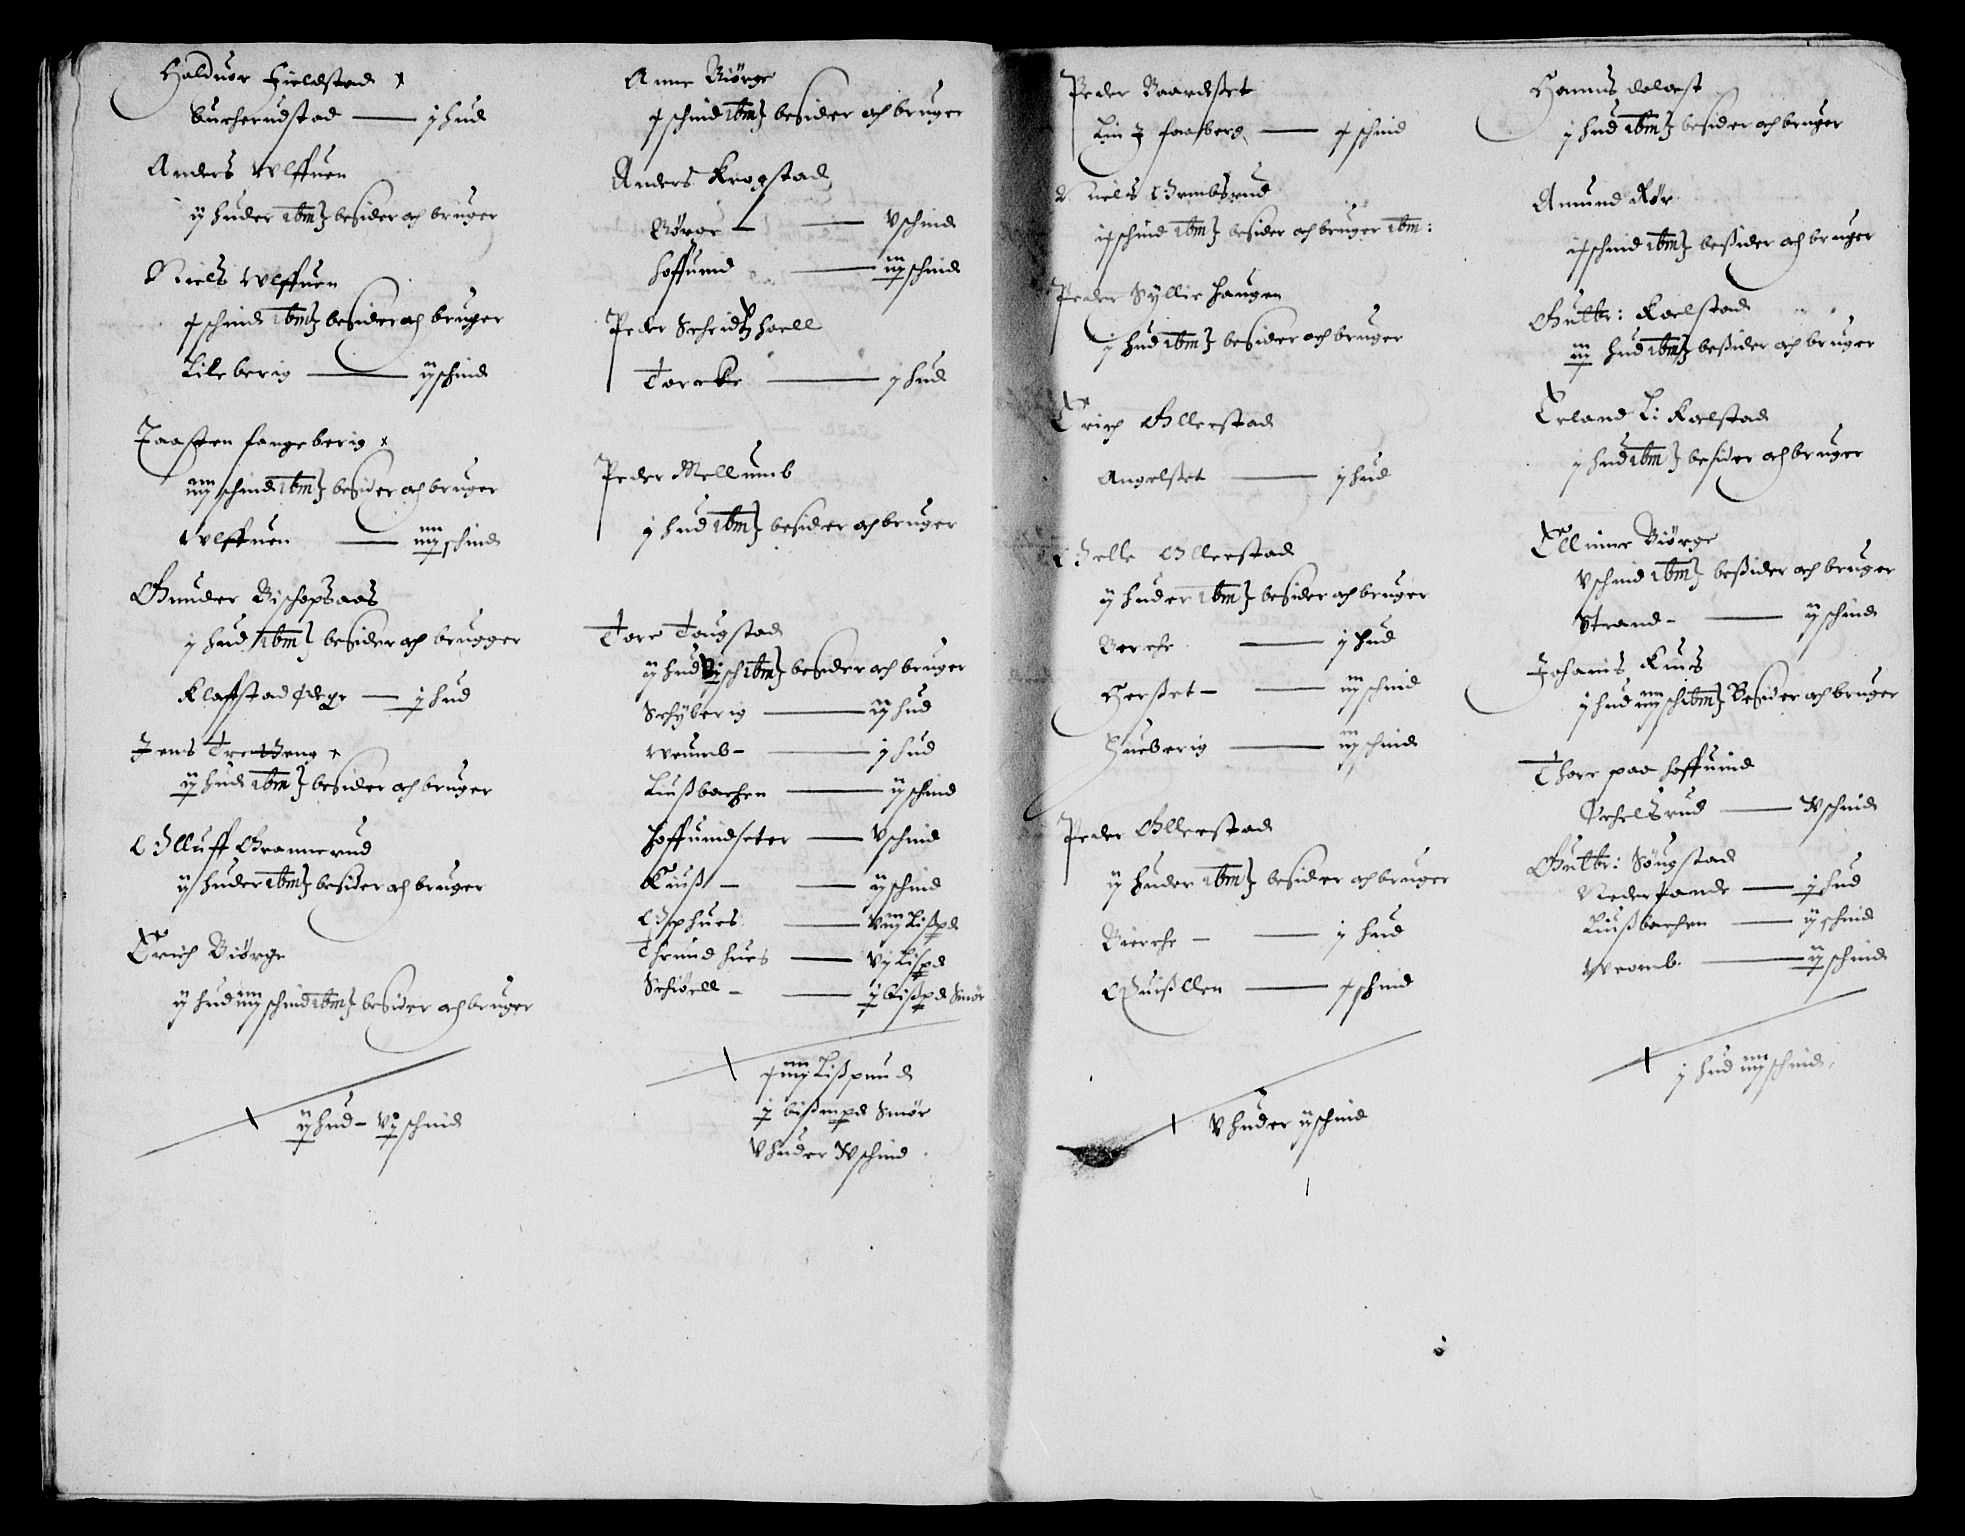 Halduor Fieldstad x
Burherudstad — j hud
Anders Vlffuen
ij huder ibm besider och bruger
Niels Vlffuen
j schind ibm besider och bruger
Lileberig — ij schind
Faasten fangeberig x
iiij schind ibm besider och bruger
Vlffuen — iiij schind
Gunder Bischopsaas
j hud ibm besider och brugger
Klaffstad — j hud
Jens x
ij hud ibm besider och bruger
Olluff Grannerud
ij huder ibm besider och bruger
Erich Biørge
ij hud iiij schind ibm besider och bruger
ij hud - vj schind
Anne Biørge
j schind ibm besider och bruger
Anders Krogstad
Børge — v schind
Hoffuind — iij schind
Peder Schridtzhoell
Torcke — j hud
Peder Mellumb
j hud ibm besider och bruger
Tore Tougstad
ij hud vj sch ibm besider och bruger
Schÿberig — ij hud
Weumb — j hud
Liußbachen — ij schind
Hoffuindseter — v schind
Kuiß — ij schind
Ophues — viij Lißpd
Thrundhues — vj Lispd
Schiøell — j bißpd Smør
iiij Lißpund
j bißmpd Smør
v huder xv schind
Peder Baardsset
Lin j faasberg — j schind
Niels Grmbsrud
ij schind ibm besider och bruger ibm:
Peder Sylliehaugen
j hud ibm besider och bruger
Erich Ollerstad
Angelset — j hud
Helle Ollerstad
ij huder ibm besider och bruger
Berche — j hud
Herset — iij schind
Hueberig — iij schind
Peder Ollerstad
ij huder ibm besider och bruger
Bierche — j hud
Quißllen — j schind
v huder ij schind
Hanns dalset
j hud ibm besider och bruger
Amund Rør
ij schind ibm beßider och bruger
Gutbr: Kaelstad
iij hud ibm beßider och bruger
Erland L: Kaelstad
j hud ibm besider och bruger
Ellinne Biørge
v schind ibm beßider och bruger
Strand — ij schind
Johanis Kuis
j hud iiij sch ibm Besider och bruger
Thore paa Hoffuind
Øehelsrud — xv schind
Gutbr: Søugstad
Nederjande — j hud
Liußbachen — ij schind
Weomb — ij schind
j hud iiij schind